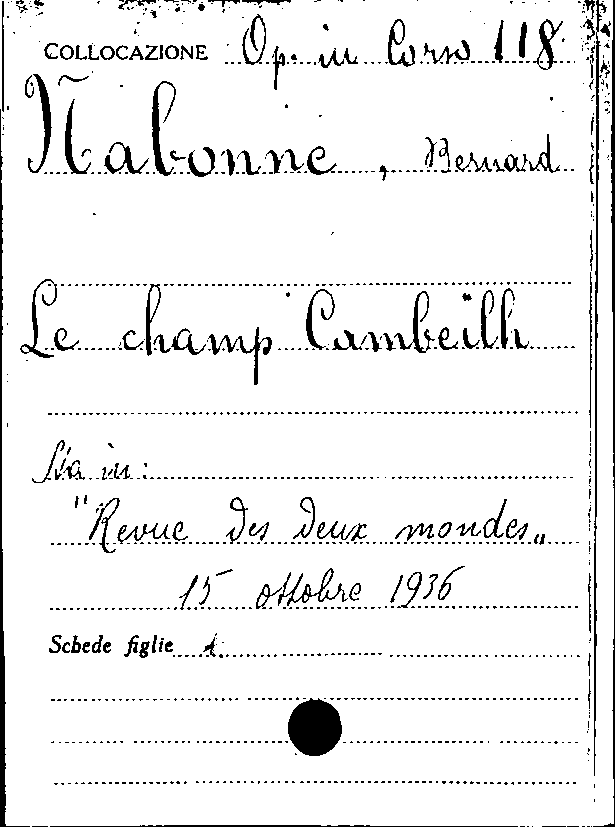 COLLOCAZIONE Op. in Corso 118
Nabonne, Bernard
Le champ Cambeilh
Sta in:
"Revue des deux mondes„
15 ottobre 1936
Schede figlie 1.